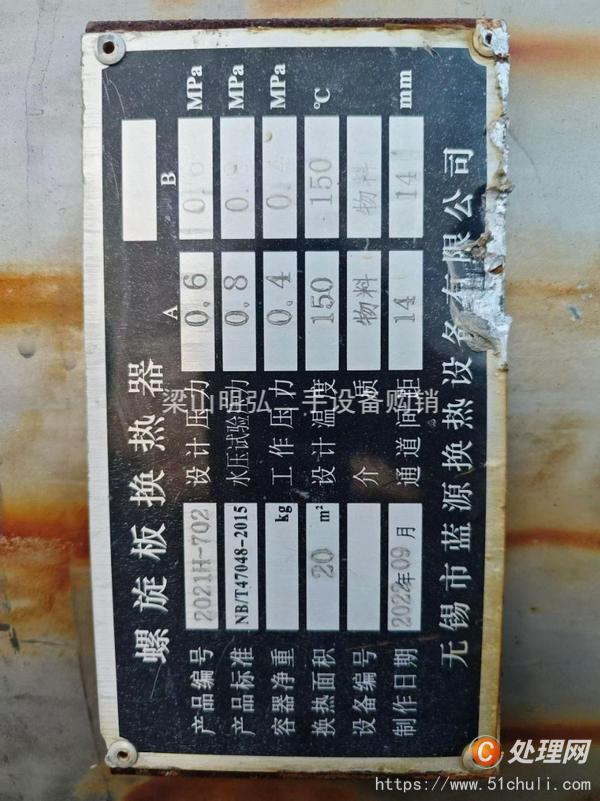 螺旋板换热器
A B
产品编号 2021H-702 设计压力 0.6 0.6 MPa
产品标准 NB/T47048-2015 水压试验压力 0.8 0. MPa
容器净重 kg 工作压力 0.4 0.4 MPa
换热面积 20 m² 设计温度 150 150 ℃
设备编号 介 质 物料 物料
制作日期 2022年09月 通道间距 14 14 mm
无锡市蓝源换热设备有限公司
梁山明弘二手设备购销
C处理网
https://www.51chuli.com/